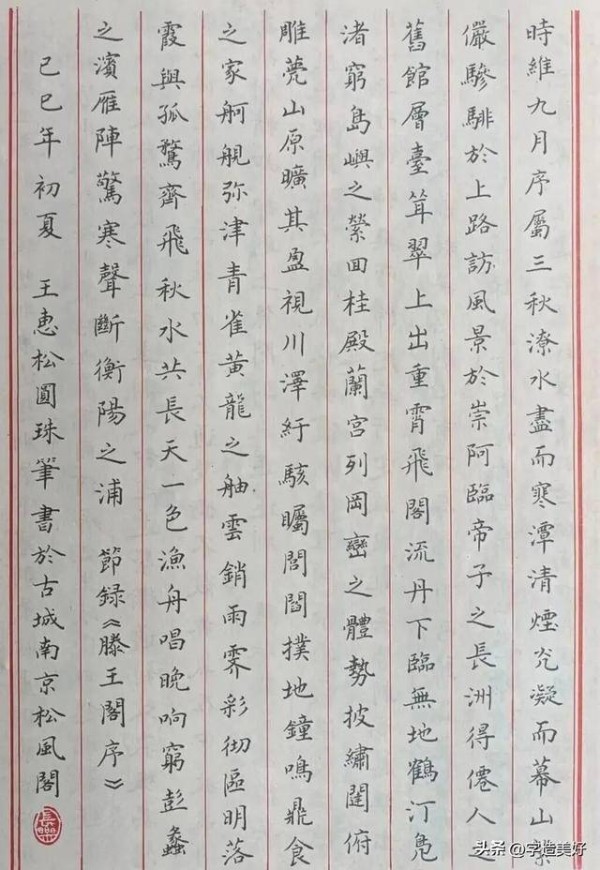 時維九月序屬三秋潦水盡而寒潭清煙光凝而暮山紫
儼驂騑於上路訪風景於崇阿臨帝子之長洲得僊人之
舊館層臺聳翠上出重霄飛閣流丹下臨無地鶴汀鳧
渚窮島嶼之縈回桂殿蘭宮列岡巒之體勢披繡闥俯
雕甍山原曠其盈視川澤紆駭矚閭閻撲地鐘鳴鼎食
之家舸舰弥津青雀黃龍之舳雲銷雨霽彩彻區明落
霞與孤鶩齊飛秋水共長天一色漁舟唱晚响窮彭蠡
之濱雁陣驚寒聲斷衡陽之浦 節録《滕王閣序》
己巳年初夏 王惠松圓珠筆書於古城南京松風閣
头条 @字造美好